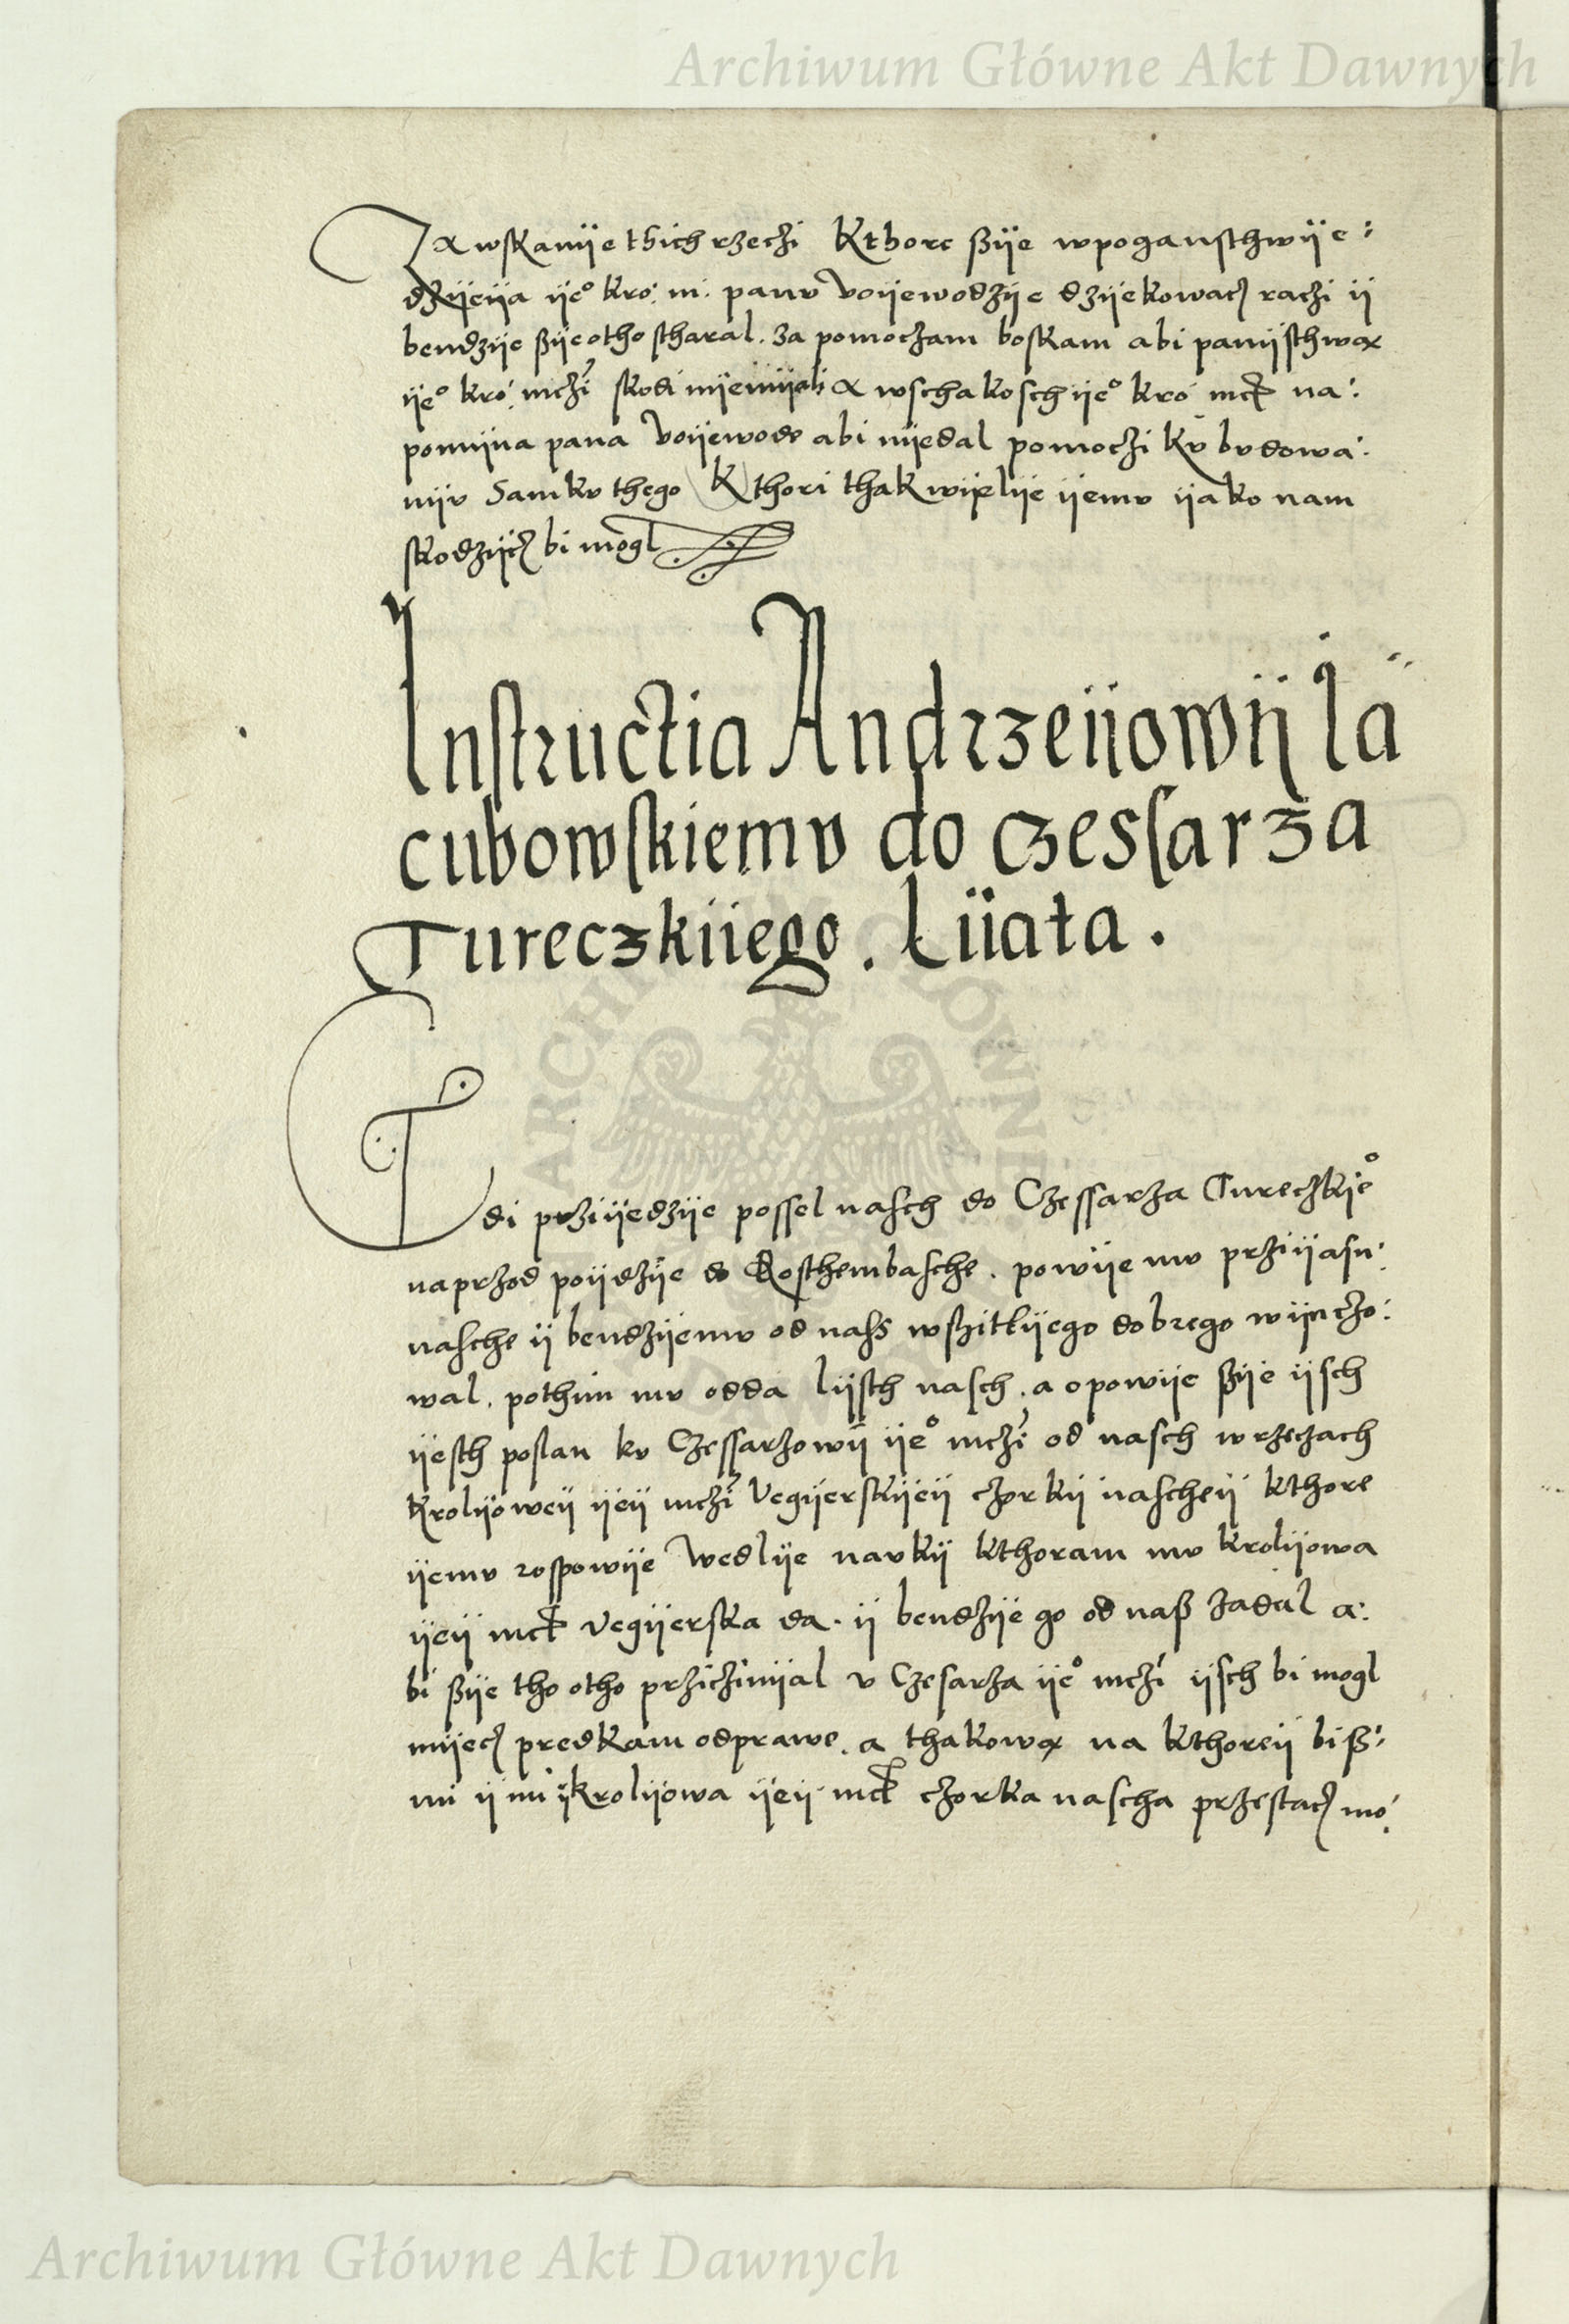 Archiwum Główne Akt Dawnych
Za wskanije thich rzeczi kthore ßije wpoganschwije:
dzijeija ije° kro: m: panv voijewodzije dzijekowacz raczi ij
bendzije ßije otho stharal. za pomoczam boskam abi panijsthwa
ije° kro: mczi skodi nijemijali a wschakosch ije° kro mcz na:
pomijna pana voijewode abi nijedal pomoczi kv bvdowa:
nijv Samkv thego kthori thak wijelije ijemv ijako nam
skodzijcz bi mogl
Instructia Andrzeijowij Ja
cubowskiemv do czessarza
Tureczkiiego. Liiata.
Gdi prziijedzije possel nasch do Czessarza Tureczkije°
naprzod poijdzije do Rosthembasche. powije mv prziijasn:
nasche ij bendzijemv od nass wßitkijego dobrego wijnczo:
wal. pothim mv odda lijsth nasch. a opowije ßije ijsch
ijesth poslan kv Czessarzowij ije° mczi od nasch wrzeczach
krolijoweij ijeij mczi vegijerskijeij czorkij nascheij kthore
ijemv rospowije wedlije navkij kthoram mv krolijowa
ijeij mcz vegijerska da. ij bendzije go od naß zadal a:
bi ßije tho otho prziczinijal v Czesarza ije° mczi ijsch bi mogl
mijecz predkam odprawe. a thakowa na kthoreij biß:
mi ij mi ij krolijowa ijeij mcz czorka nascha przestacz mo:
ARCHIWUM GŁÓWNE
Archiwum Główne Akt Dawnych